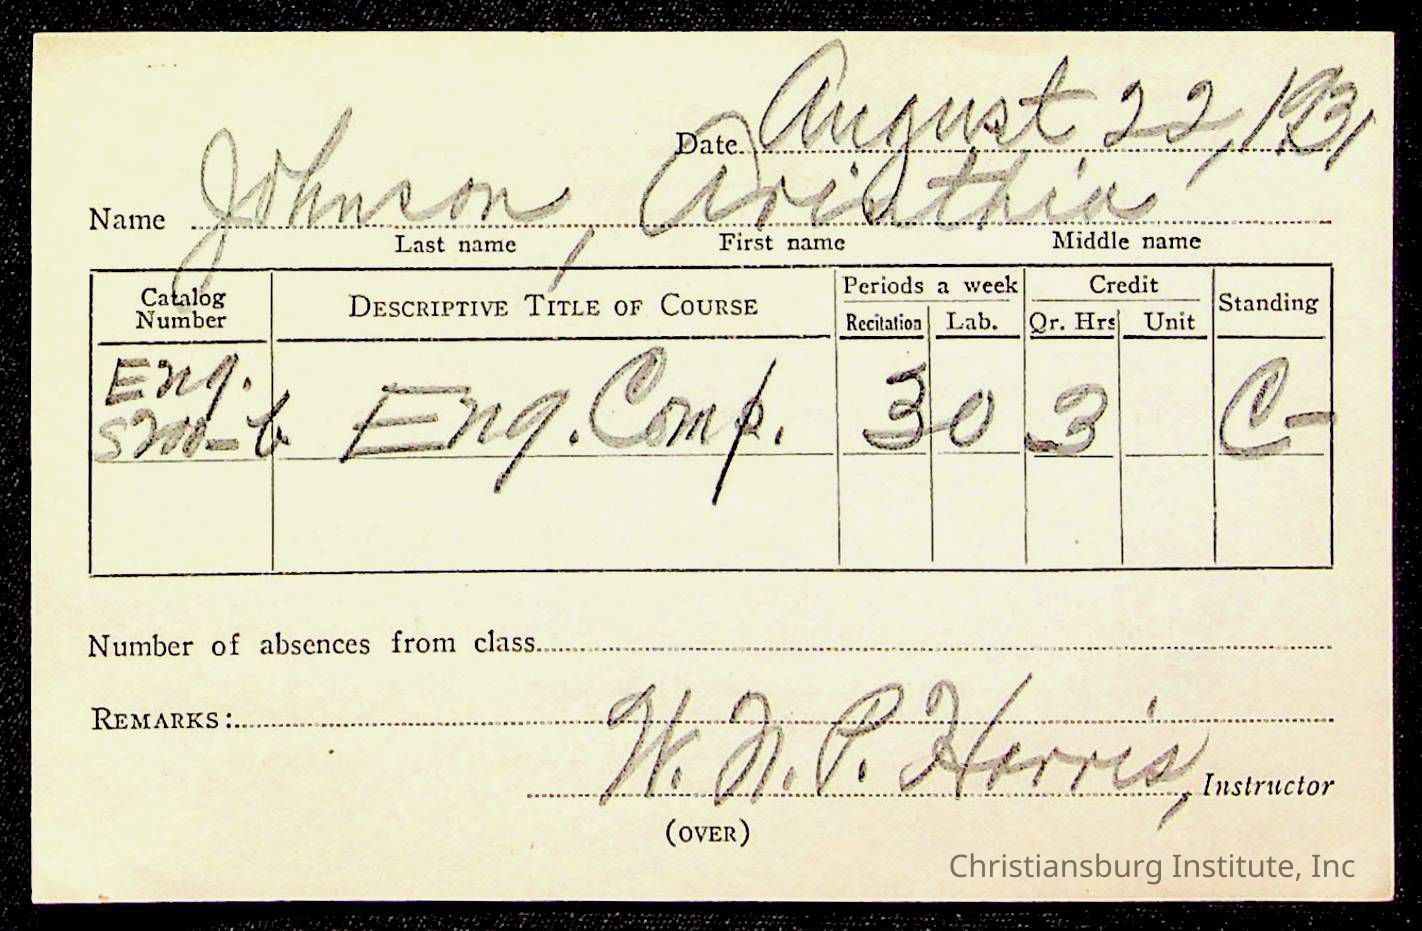 Date August 22, 1931
Name Johnson, Arinthia
Last name First name Middle name
Catalog Number DESCRIPTIVE TITLE OF COURSE Periods a week Credit Standing
Recitation Lab. Qr. Hrs Unit
Eng.
Eng. Comp. 30 0 3 C-
Number of absences from class
REMARKS:
W. N. P. Harris, Instructor
(OVER)
Christiansburg Institute, Inc